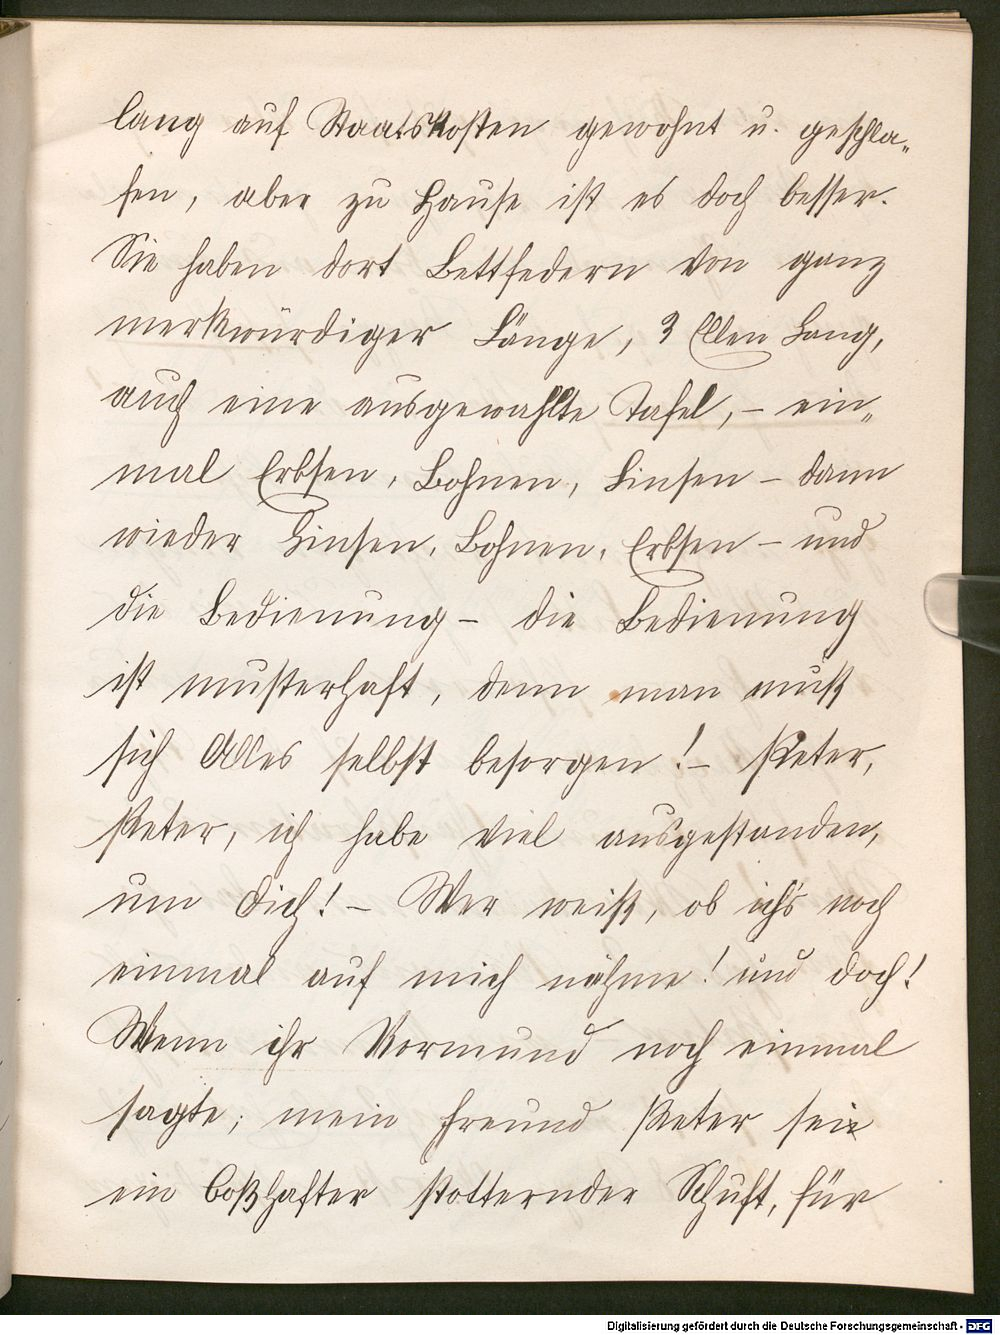 lang auf Staatskosten gewohnt u. geschla„
fen, aber zu Hause ist es doch besser.
Sie haben dort Bettfedern von ganz
merkwürdiger Länge, 3 Ellen Lang,
auch eine ausgewahlte Tafel, – ein„
mal Erbsen, Bohnen, Linsen – dann
wieder Linsen, Bohnen, Erbsen – und
die Bedienung – die Bedienung
ist musterhaft, denn man muß
sich Alles selbst besorgen! – Peter,
Peter, ich habe viel ausgestanden,
um Dich! – Wer weiß, ob ich's noch
einmal auf mich nähme! und doch!
Wenn ihr Vormund noch einmal
sagte, mein Freund Peter sei
ein boßhafter stotternder Schuft, für
Digitalisierung gefördert durch die Deutsche Forschungsgemeinschaft - DFG